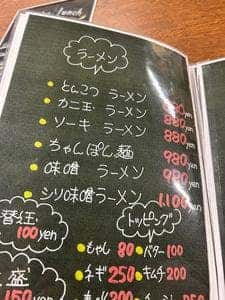 lunch
ラーメン
とんこつ ラーメン
カニ玉 ラーメン 880
ソーキ ラーメン 880 yen
ちゃんぽん麺 980 yen
味噌 ラーメン 980 yen
シリ味噌ラーメン 1,100 yen
替玉 100yen
トッピング
もやし 80
バター 100
ネギ 250
キムチ 200
150 yen